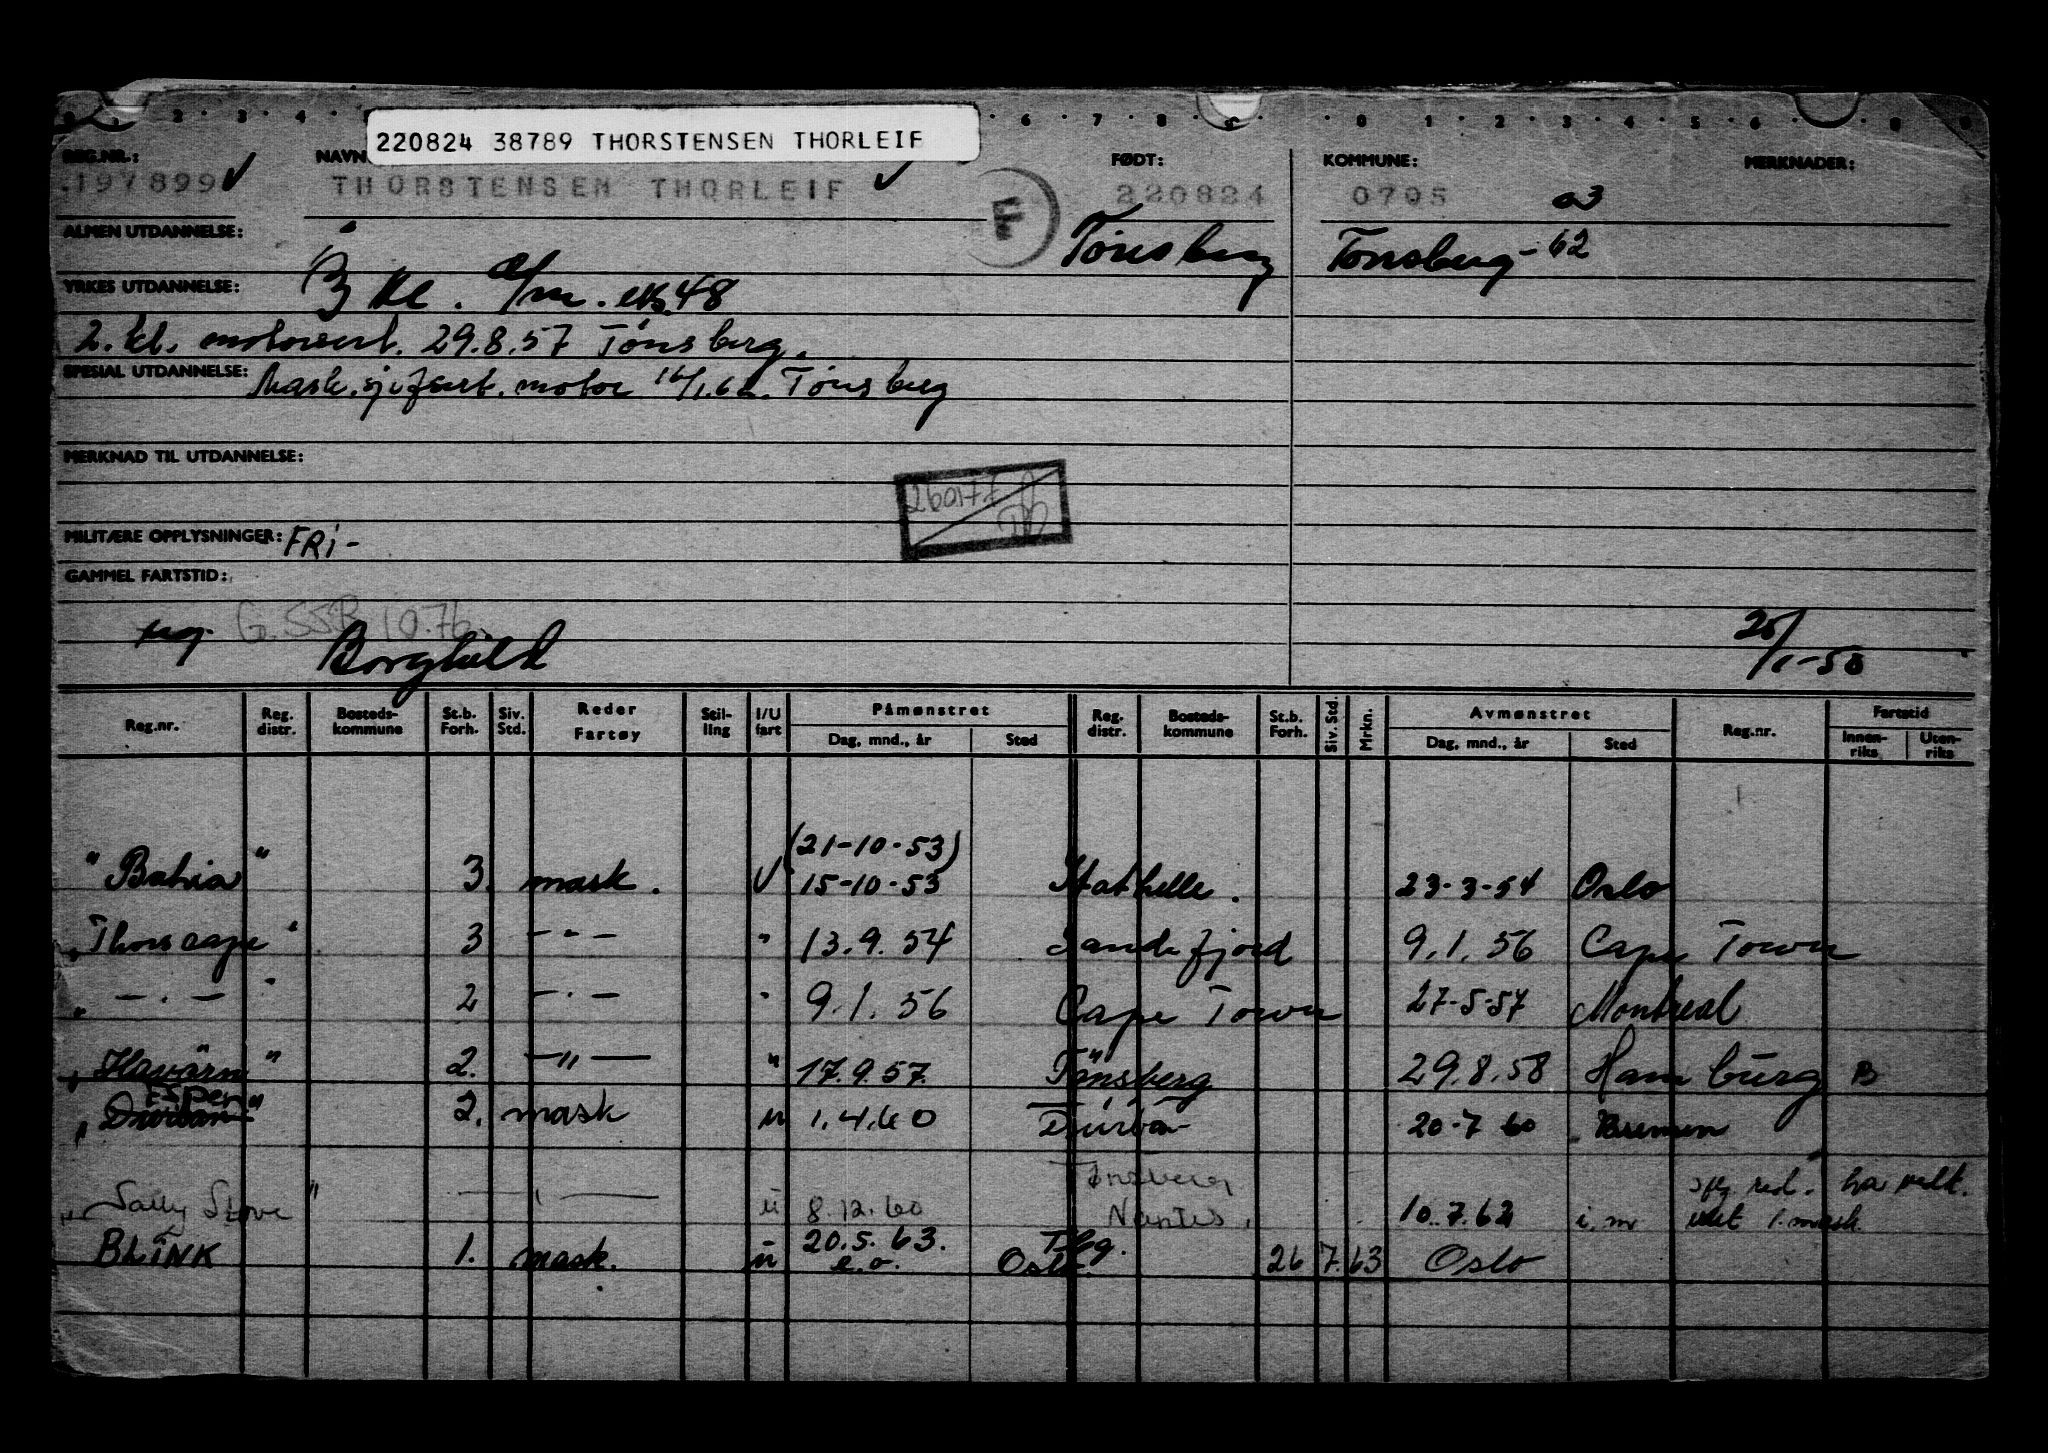 220824 38789 THORSTENSEN THORLEIF
REG.NR.: NAVN FØDT: KOMMUNE: MERKNADER:
197899 THORSTENSEN THORLEIF F 220824 0705 03
ALMEN UTDANNELSE: Tønsberg Tønsberg-62
YRKES UTDANNELSE: kl. eks. 48
2. kl. motorsert. 29.8.57 Tønsberg.
SPESIAL UTDANNELSE: Mask. sjefsert. motor Tønsberg
MERKNAD TIL UTDANNELSE:
260177
MILITÆRE OPPLYSNINGER: FRi-
GAMMEL FARTSTID:
ug. G. SSB 10.76.
Borghild 1-50
Reg.nr. Reg. distr. Bosteds-kommune St.b. Forh. Siv. Std. Reder Fartøy Stil-ling I/U fart Påmønstret Dag, mnd., år Sted Reg. distr. Bosteds-kommune St.b. Forh. Siv. Std. Mrkn. Avmønstret Dag, mnd., år Sted Reg.nr. Fartstid Innen-riks Uten-riks
(21-10-53)
"Bahia" 3 mask. U 15-10-53 Stathelle. 23-3-54 Oslo
"Thorscape" 3 -"- " 13.9.54 Sandefjord 9.1.56 Cape Town
" -.- " 2 -.- " 9.1.56 Cape Town 27-5-57 Montreal
"Havörn" 2. -"- " 17.9.57. Tönsberg 29.8.58 Hamburg B
Esper
"Durban" 2. mask u 1.4.60 Durban 20-7 60 Bremen
Tønsberg red. ha
"Sally Stove" -"- u 8.12.60 Nantes. 10.7.62 i.m 1. mask.
BLINK 1. mask. u 20.5.63. Tbg. 26 7.63 Oslo
e.o. Oslo.